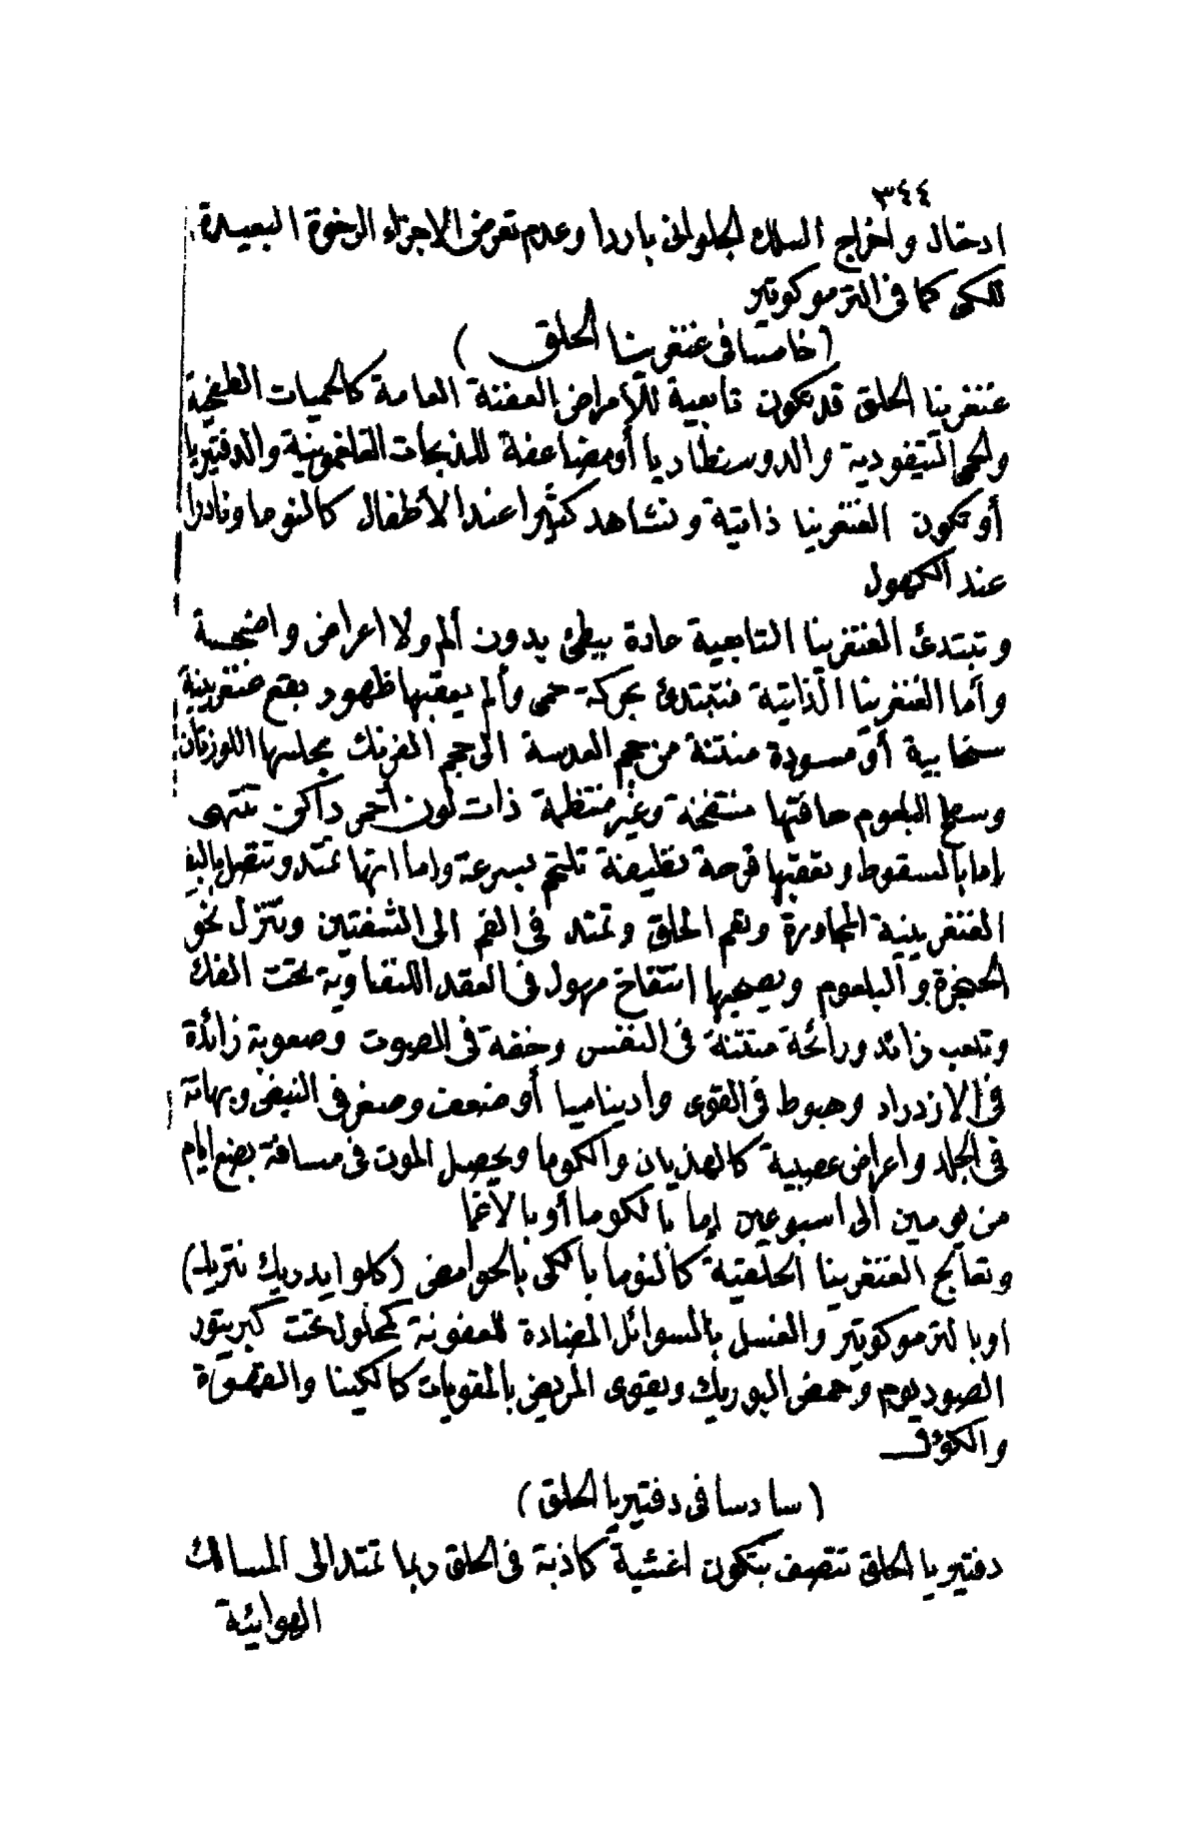 ٣٤٤
ادخال واخراج السلك الجلوانى باردا وعدم تعرض الاجزاء الرخوة البعيدة
للكى كما فى الترموكوتير
(خامسا فى غنغرينا الحلق)
غنغرينا الحلق قد تكون تابعية للأمراض العفنة العامة كالحميات الطفحية
والحمى التيفودية والدوسنطاريا أو مضاعفة للذبحات الفلغمونية والدفتيريا
أو تكون الغنغرينا ذاتية وتشاهد كثيرا عند الأطفال كالنوما ونادرا
عند الكهول
وتبتدئ الغنغرينا التابعية عادة ببطئ بدون ألم ولا اعراض واضحة
وأما الغنغرينا الذاتية فتبتدئ بحركة حمى وألم يعقبها ظهور بقع غنغرينية
سنجابية أو مسودة منتنة من حجم العدسة الى حجم الفرنك مجلسها اللوزتان
وسطح البلعوم حافتها منتفخة وغير منتظمة ذات لون أحمر داكن تنتهى
إما بالسقوط ويعقبها قرحة نظيفة تلتحم بسرعة واما انها تمتد وتتصل بالبقع
الغنغرينية المجاورة وتعم الحلق وتمتد فى الفم الى الشفتين وتنزل نحو
الحنجرة والبلعوم ويصحبها انتفاخ مهول فى العقد اللنفاوية تحت الفك
وتلعب زائد ورائحة منتنة فى النفس وخفة فى الصوت وصعوبة زائدة
فى الازدراد وهبوط فى القوى واديناميا أو ضعف وصغر فى النبض وبهاتة
فى الجلد واعراض عصبية كالهذيان والكوما ويحصل الموت فى مسافة بضع ايام
من يومين الى اسبوعين إما بالكوما أو بالاغما
وتعالج الغنغرينا الحلقية كالنوما بالكى بالحوامض (كلوايدريك نتريك)
اوبالترموكوتير والغسل بالسوائل المضادة للعفونة كمحلول تحت كبريتور
الصوديوم وحمض البوريك ويقوى المريض بالمقويات كالكينا والقهوة
والكونياك
(سادسا فى دفتيريا الحلق)
دفتيريا الحلق تتصف بتكون اغشية كاذبة فى الحلق ربما تمتد الى المسالك
الهوائية